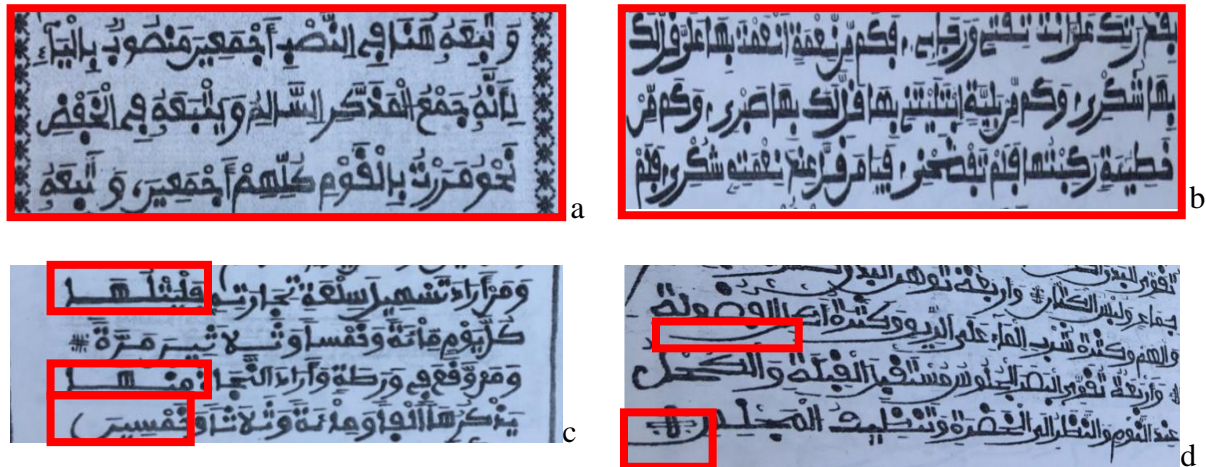 وَتَبِعَهُ هُنَا فِي النَّصْبِ أَجْمَعِينَ مَنْصُوبٌ بِالْيَاءِ
لِأَنَّهُ جَمْعُ الْمُذَكَّرِ السَّالِمُ وَيَتْبَعُهُ فِي الْخَفْضِ
نَحْوُ مَرَرْتُ بِالْقَوْمِ كُلِّهِمْ أَجْمَعِينَ، وَتَبِعَهُ
a
عَلَيَّ أَنْتَ ثِقَتِي وَرَجَائِي، فَكَمْ مِنْ نِعْمَةٍ أَنْعَمْتَ بِهَا عَلَيَّ قَلَّ لَكَ
بِهَا شُكْرِي، وَكَمْ مِنْ بَلِيَّةٍ ابْتَلَيْتَنِي بِهَا قَلَّ لَكَ بِهَا صَبْرِي، وَكَمْ مِنْ
خَطِيئَةٍ رَكِبْتُهَا فَلَمْ تَفْضَحْنِي، فَيَا مَنْ قَلَّ عِنْدَ نِعْمَتِهِ شُكْرِي، فَلَمْ
b
وَمَنْ أَرَادَ تَسْهِيلَ سِلْعَةِ تِجَارَتِهِ فَلْيَتْلُهَا
كُلَّ يَوْمٍ مِائَةً وَخَمْسًا وَثَلَاثِينَ مَرَّةً
وَمَنْ وَقَعَ فِي وَرْطَةٍ وَأَرَادَ النَّجَاةَ مِنْهَا
يَذْكُرُهَا أَلْفًا وَمِائَةً وَثَلَاثًا وَخَمْسِينَ
c
تقوي البدن
جماع ولبس الكتان وأربعة توهن البدن
والهم وكثرة شرب الماء على الريق وكثرة أكل
وأربعة تقوي البصر الجلوس مستقبل القبلة والكحل
عند النوم والنظر إلى الخضرة وتنظيف المجلس
d